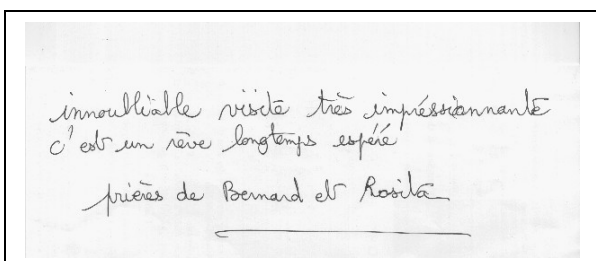 innoubliable visite très impréssionnante
c'est un rêve longtemps espéré
prières de Bernard et Rosita